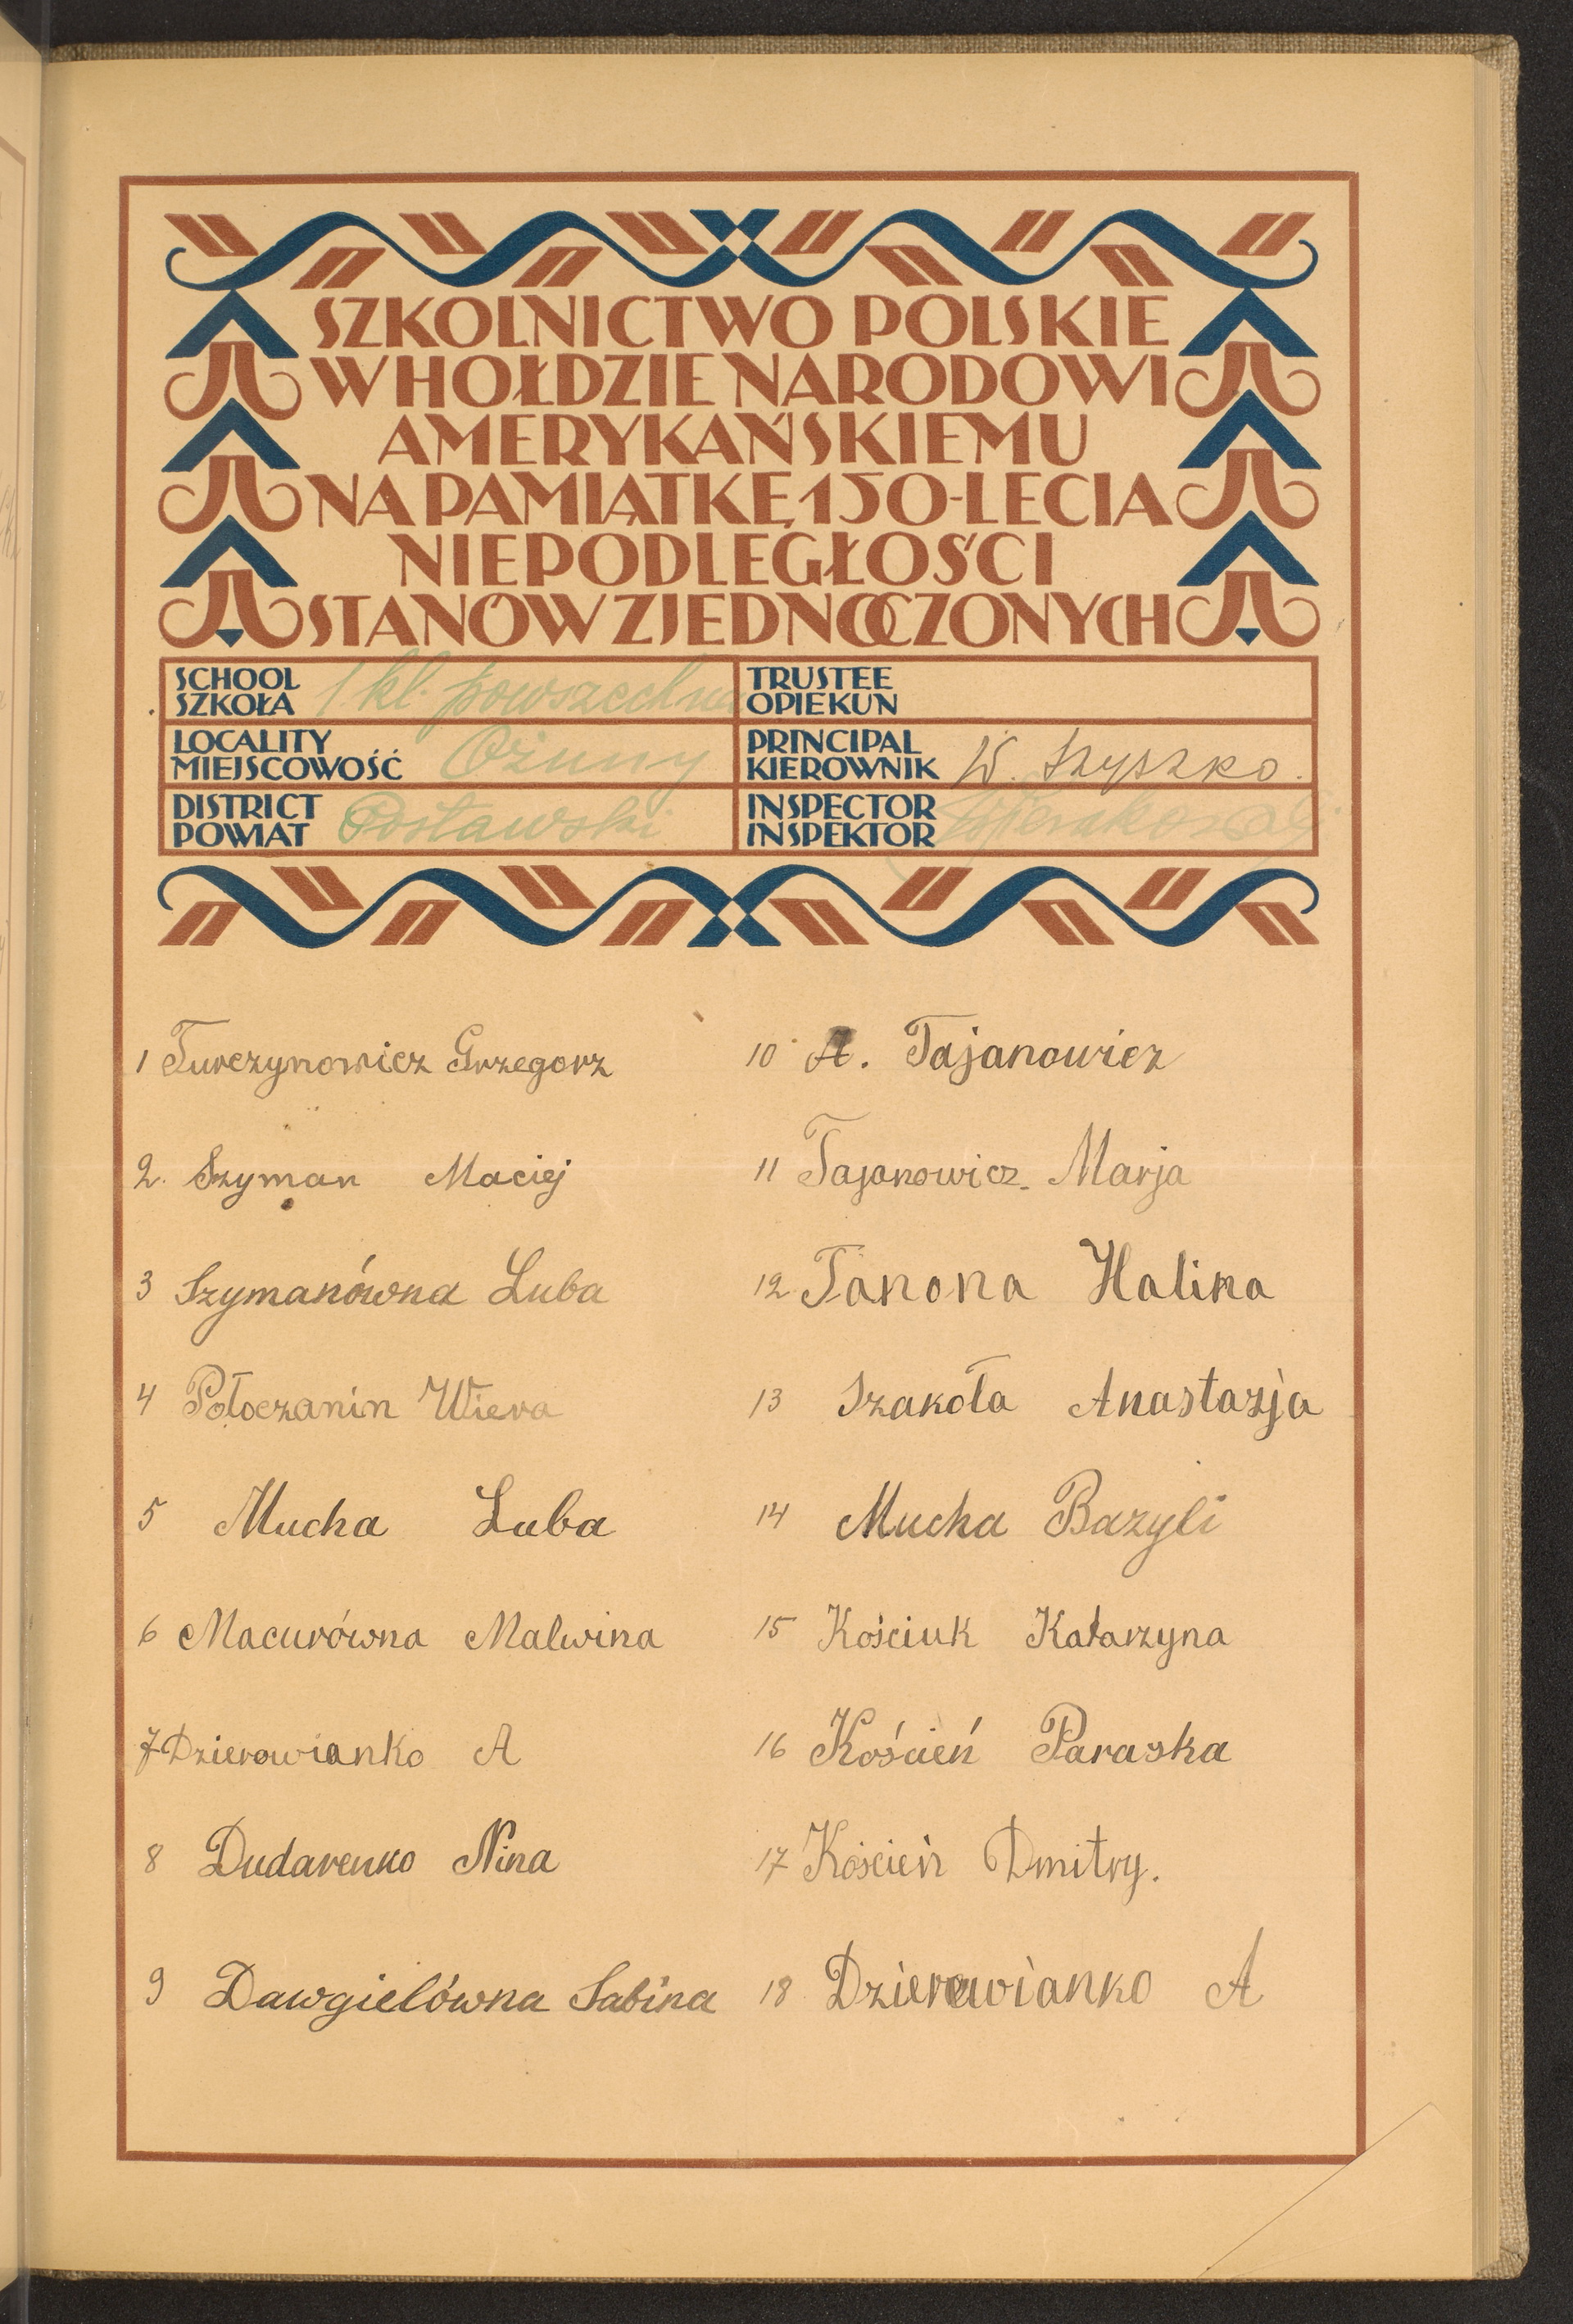 SZKOLNICTWO POLSKIE
W HOŁDZIE NARODOWI
AMERYKAŃSKIEMU
NA PAMIĄTKĘ 150-LECIA
NIEPODLEGŁOŚCI
STANÓW ZJEDNOCZONYCH
SCHOOL
SZKOŁA 1 kl. powszechna
TRUSTEE
OPIEKUN
LOCALITY
MIEJSCOWOŚĆ Ożuny
PRINCIPAL
KIEROWNIK W. Szyszko.
DISTRICT
POWIAT Postawski
INSPECTOR
INSPEKTOR
1 Turczynowicz Grzegorz
2. Szyman Maciej
3 Szymanówna Luba
4 Połoczanin Wiera
5 Mucha Luba
6 Macurówna Malwina
7 Dzierowianko A
8 Dudarenko Nina
9 Dawgielówna Sabina
10 A. Tajanowicz
11 Tajanowicz Marja
12 Tanona Halina
13 Szakoła Anastazja
14 Mucha Bazyli
15 Kościuk Katarzyna
16 Koścień Paraska
17 Koścień Dmitry.
18 Dzierewianko A